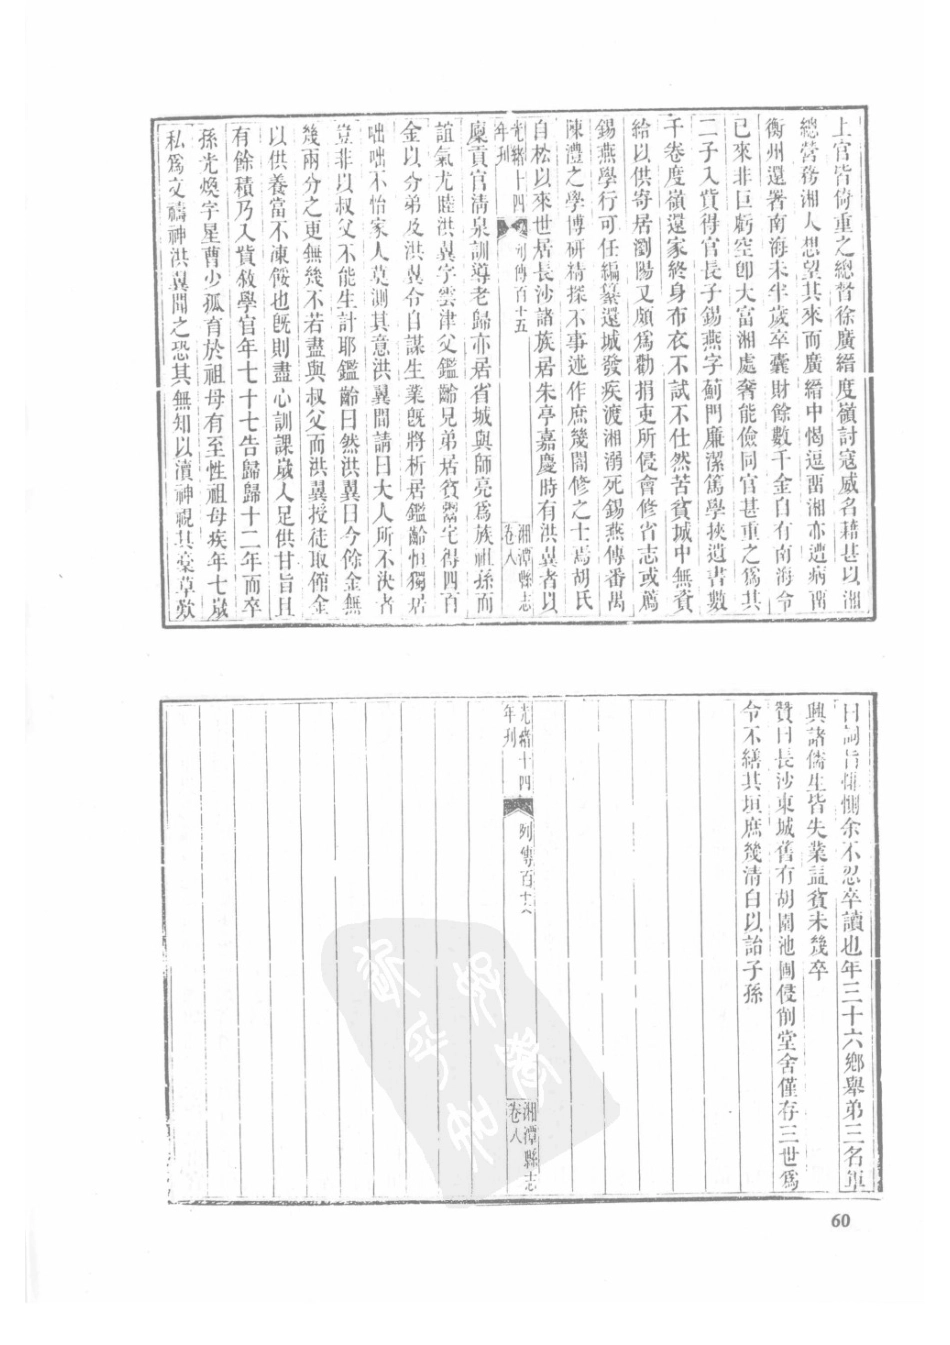 上官皆倚重之總督徐廣縉度嶺討寇威名藉甚以湘
總營務湘人想望其來而廣縉中愒逗留湘亦遭病留
衡州還署南海未半歲卒囊財餘數千金自有南海令
已來非巨虧空卽大富湘處奢能儉同官甚重之爲其
二子入貲得官長子錫燕字薊門廉潔篤學挾遺書數
千卷度嶺還家終身布衣不試不仕然苦貧城中無資
給以供寄居瀏陽又頗爲勸捐吏所侵會修省志或薦
錫燕學行可任編纂還城發疾渡湘溺死錫燕傳番禺
陳澧之學博研精探不事述作庶幾闇修之士焉胡氏
自松以來世居長沙諸族居朱亭嘉慶時有洪㠱者以
光緒十四年刊
列傳百十五
湘潭縣志卷八
廩貢官清泉訓導老歸亦居省城與師亮爲族祖孫而
誼氣尤睦洪㠱字雲津父鑑齡兄弟居貧鬻宅得四百
金以分弟及洪㠱令自謀生業旣將析居鑑齡恒獨居
咄咄不怡家人莫測其意洪㠱間請曰大人所不決者
豈非以叔父不能生計耶鑑齡曰然洪㠱曰今餘金無
幾兩分之更無幾不若盡與叔父而洪㠱授徒取館金
以供養當不凍餒也旣則盡心訓課歲人足供甘旨且
有餘積乃入貲敘學官年七十七告歸歸十二年而卒
孫光煥字星曹少孤育於祖母有至性祖母疾年七歲
私爲文禱神洪㠱聞之恐其無知以瀆神視其稾草歎
曰詞旨悱惻余不忍卒讀也年三十六鄉舉弟三名軍
興諸儒生皆失業益貧未幾卒
贊曰長沙東城舊有胡園池圃侵削堂舍僅存三世爲
令不繕其垣庶幾清白以詒子孫
光緒十四年刊
列傳百十六
湘潭縣志卷八
60